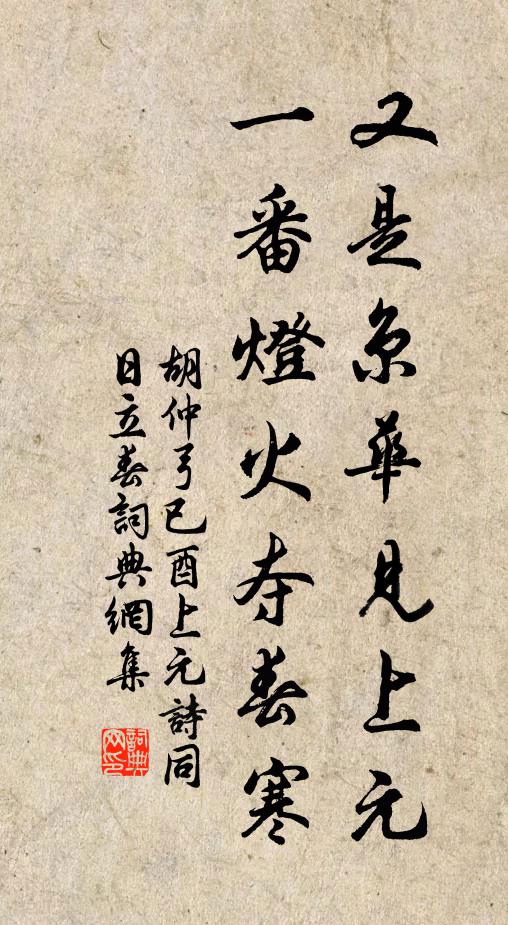 又是京華見上元
一番燈火夺春寒
胡仲弓已酉上元詩同
日立春詞典網集
詞典網印